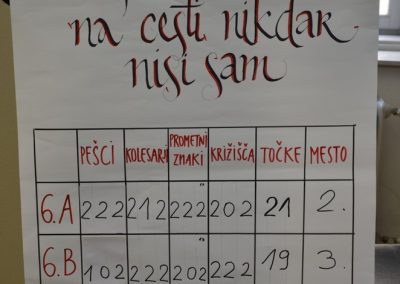 na cesti nikdar
nisi sam
PEŠCI KOLESARJI PROMETNI ZNAKI KRIŽIŠČA TOČKE MESTO
6.A 222 212 222 202 21 2.
6.B 102 222 202 222 19 3.